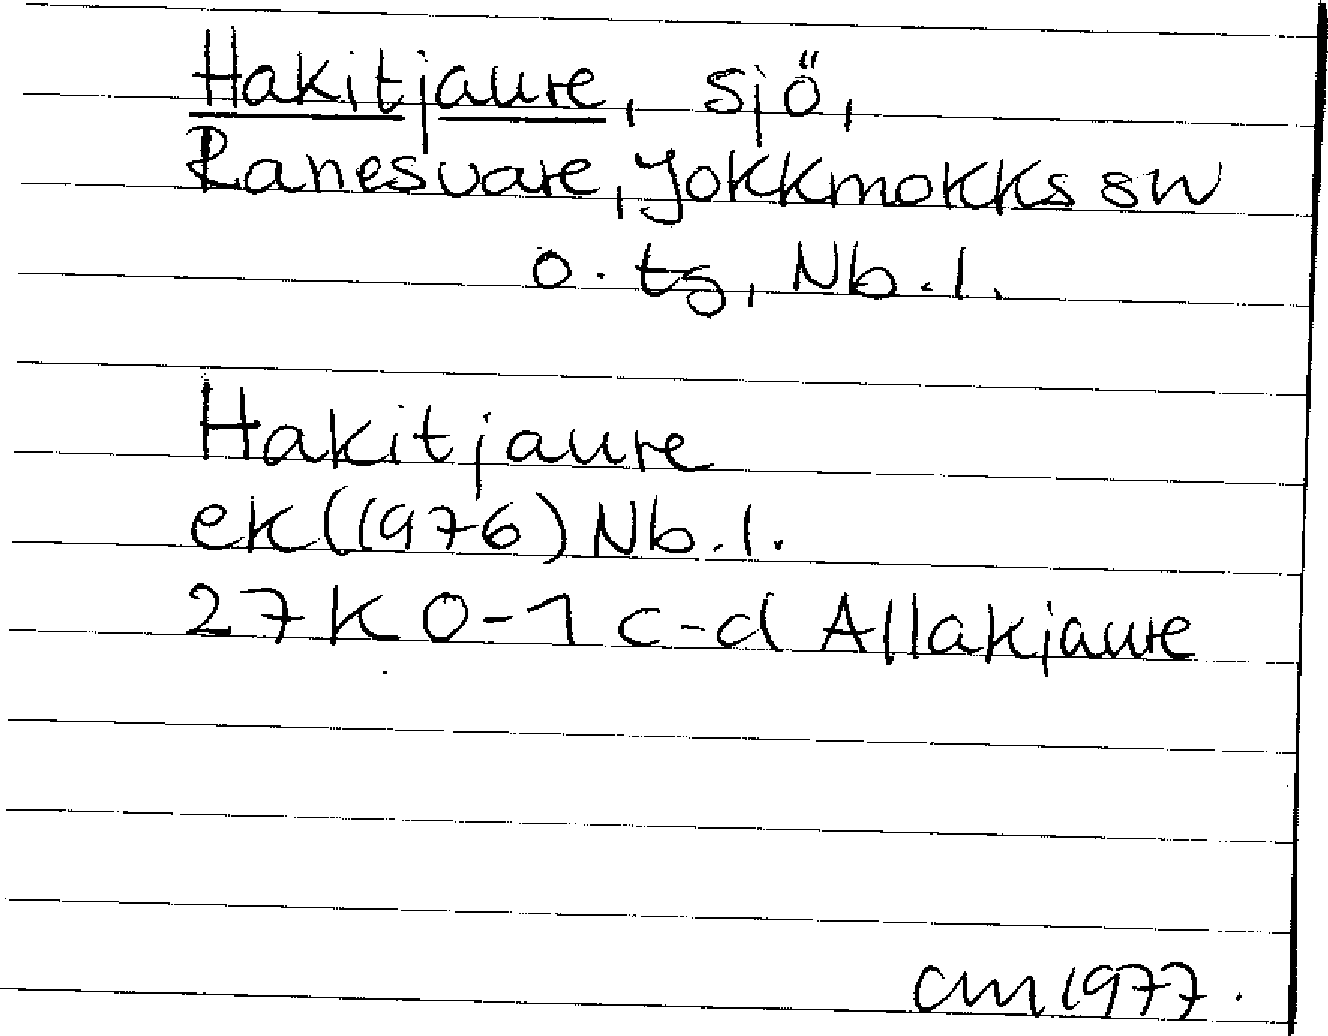 Hakitjaure, sjö,
Ranesvare, Jokkmokks sn
o. tg, Nb. l.
Hakitjaure
ek (1976) Nb. l.
27K 0-1 c-d Allakjaure
CM 1977.